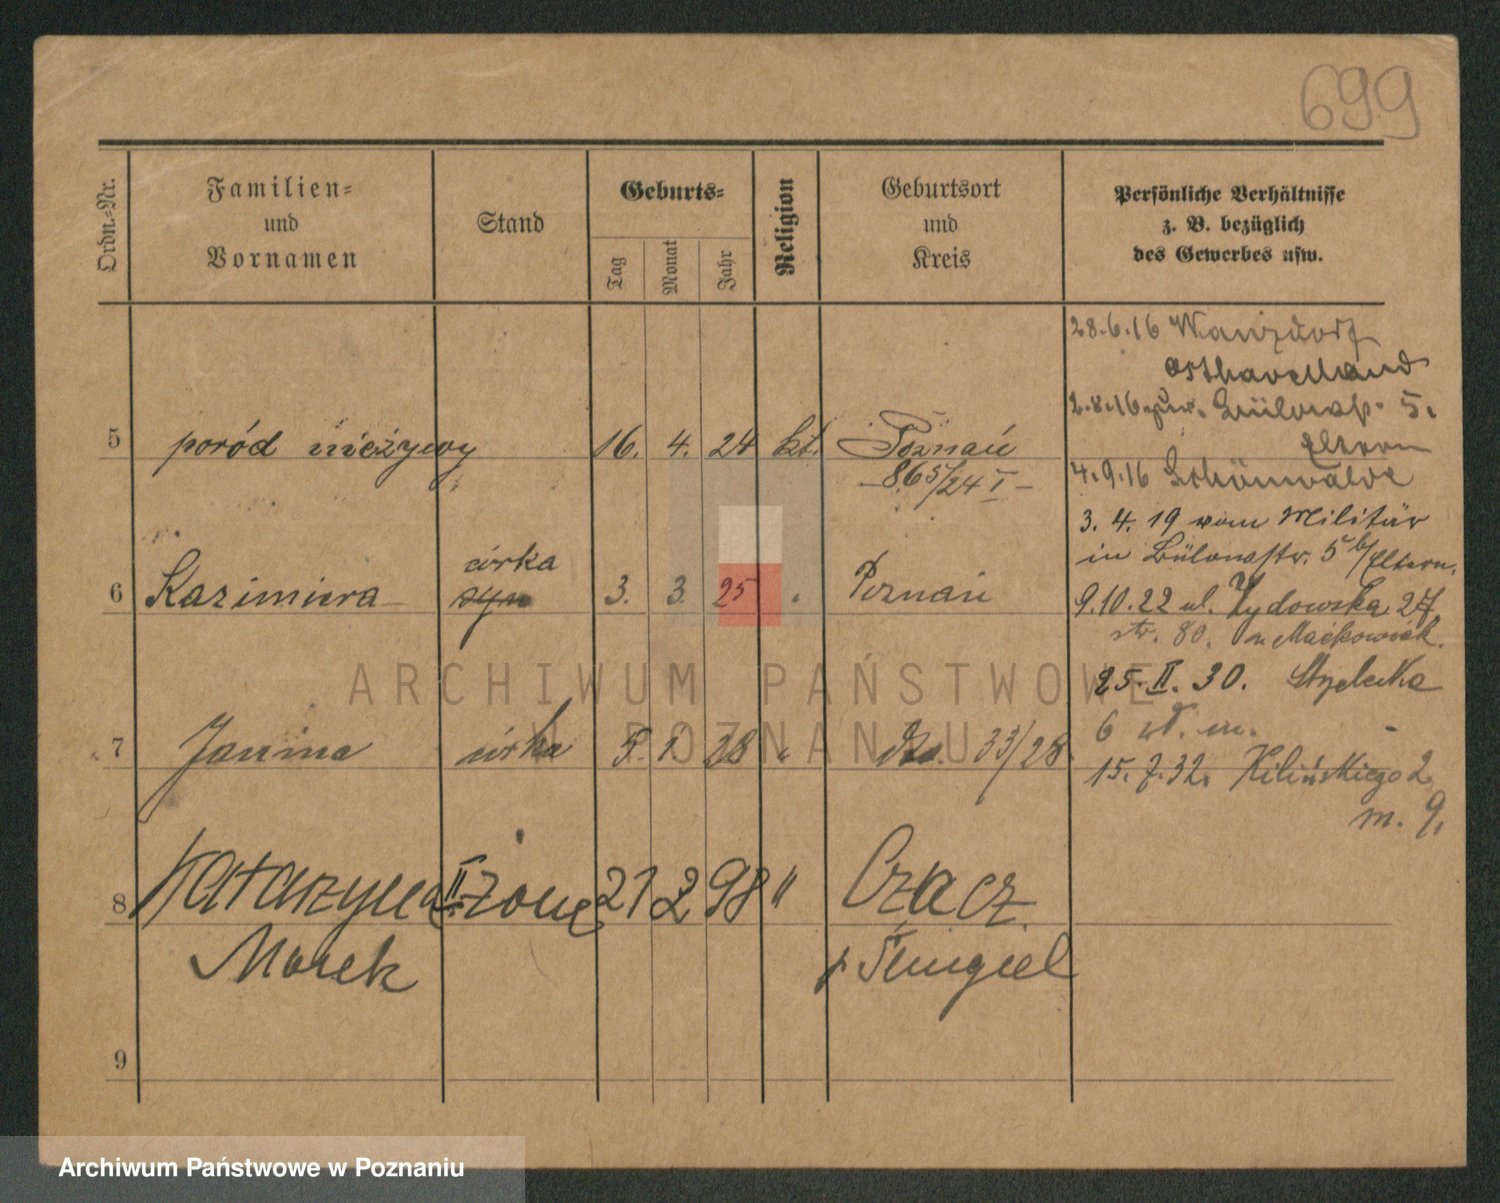 699
Ordn.-Nr.
Familien-
und
Vornamen
Stand
Geburts-
Tag
Monat
Jahr
Religion
Geburtsort
und
Kreis
Persönliche Verhältnisse
z. B. bezüglich
des Gewerbes usw.
5 poród nieżywy 16. 4. 24 kt. Poznań
865/24 I
6 Kazimiera córka syn 3. 3. 25 Poznań
7 Janina córka 5. 1. 28 " 33/28
8 Katarzyna II żona 21 2 98 " Czacz
Marek
9
28.6.16
Osthavelland
2.8.16 zur. Bülowstr. 5.
Eltern
4.9.16 Schönwalde
3. 4. 19 vom Militär
in Bülowstr. 5 b/Eltern.
9.10.22 ul. Żydowska 27
str. 80. Maćkowiak.
25. II. 30. Strzelecka
6 m.
15. 7. 32. Kilińskiego 2
m. 9.
ARCHIWUM PAŃSTWOWE
W POZNANIU
Archiwum Państwowe w Poznaniu